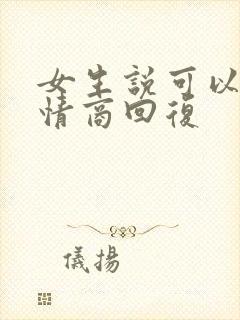 女生説可以
情商回復
儀揚